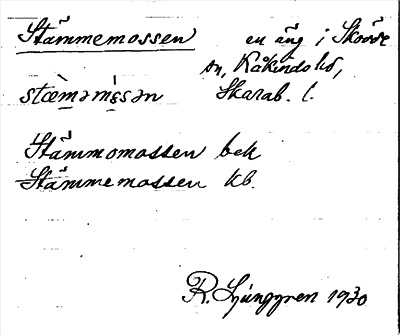 Stämmemossen en äng i Skövde
sn, Kåkinds hd,
stæ̀məmɩ̀ssən Skarab. l.
Stämmomossen bek
Stämmemossen kb.
R. Ljunggren 1930